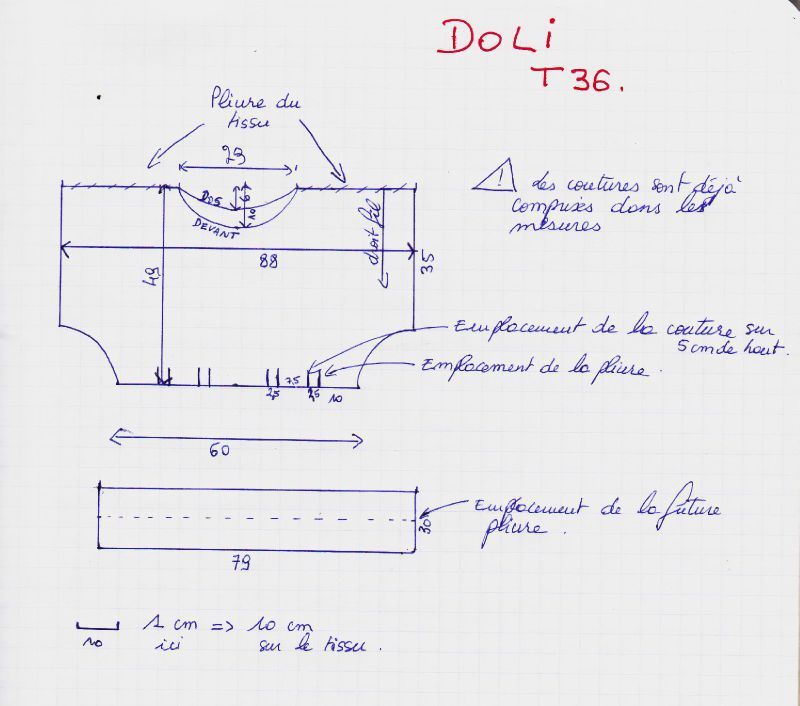 DOLi
T36.
Pliure du
tissu
29
Dos
6
10
DEVANT
droit fil
⚠ Les coutures sont déjà
comprises dans les
mesures
49
88
35
Emplacement de la couture sur
5 cm de haut.
Emplacement de la pliure.
7,5
2,5
2,5
10
60
Emplacement de la future
pliure.
30
79
1 cm => 10 cm
10 ici sur le tissu.